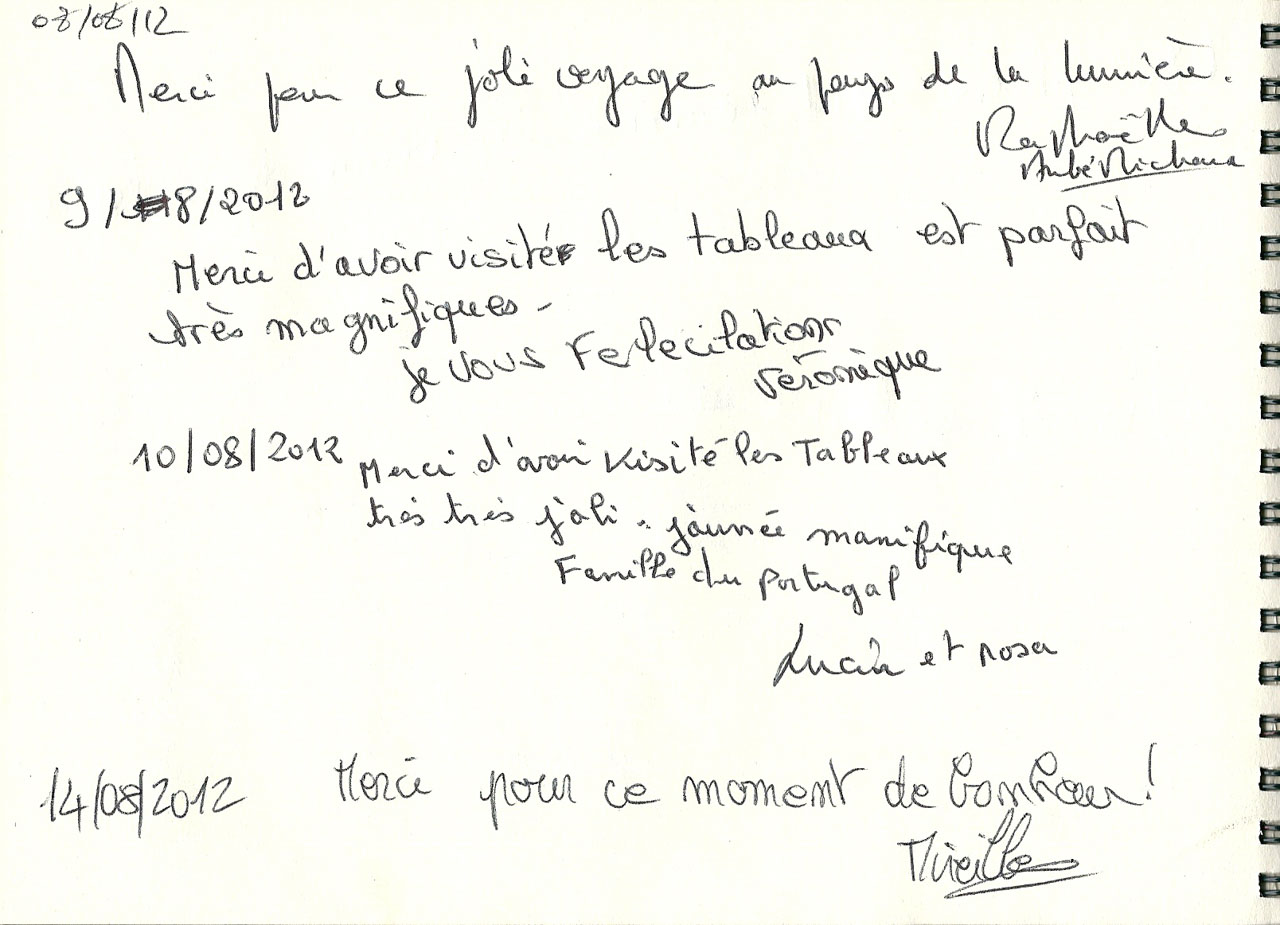 08/08/12
Merci pour ce joli voyage au pays de la lumière.
Raphaëlle
9/8/2012
Merci d'avoir visité les tableaux est parfait
très magnifiques -
je vous Felecitations
Véronique
10/08/2012 Merci d'avoir visité les Tableaux
très très joli. journée manifique
Famille du Portugal
Lucia et rosa
14/08/2012 Merci pour ce moment de bonheur!
Mireille